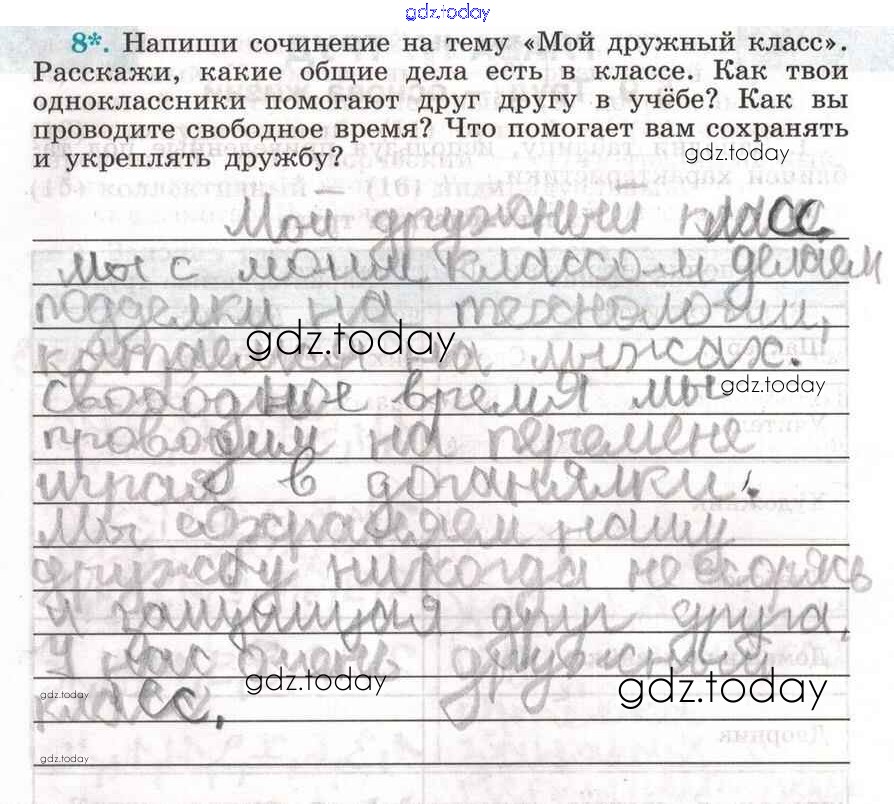 gdz.today
8*. Напиши сочинение на тему «Мой дружный класс».
Расскажи, какие общие дела есть в классе. Как твои
одноклассники помогают друг другу в учёбе? Как вы
проводите свободное время? Что помогает вам сохранять
и укреплять дружбу?
gdz.today
Мой дружный класс
мы с моим классом делаем
подделки на технологии,
катаемся на лыжах.
gdz.today
Свободное время мы
gdz.today
проводим на перемене
играя в догонялки.
Мы сохраняем нашу
дружбу никогда не ссорясь
и защищая друг друга.
У нас очень дружный
gdz.today
gdz.today
gdz.today
класс.
gdz.today